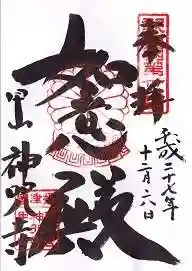 奉拝
平成二十七年
十二月六日
如意殿
神咒寺